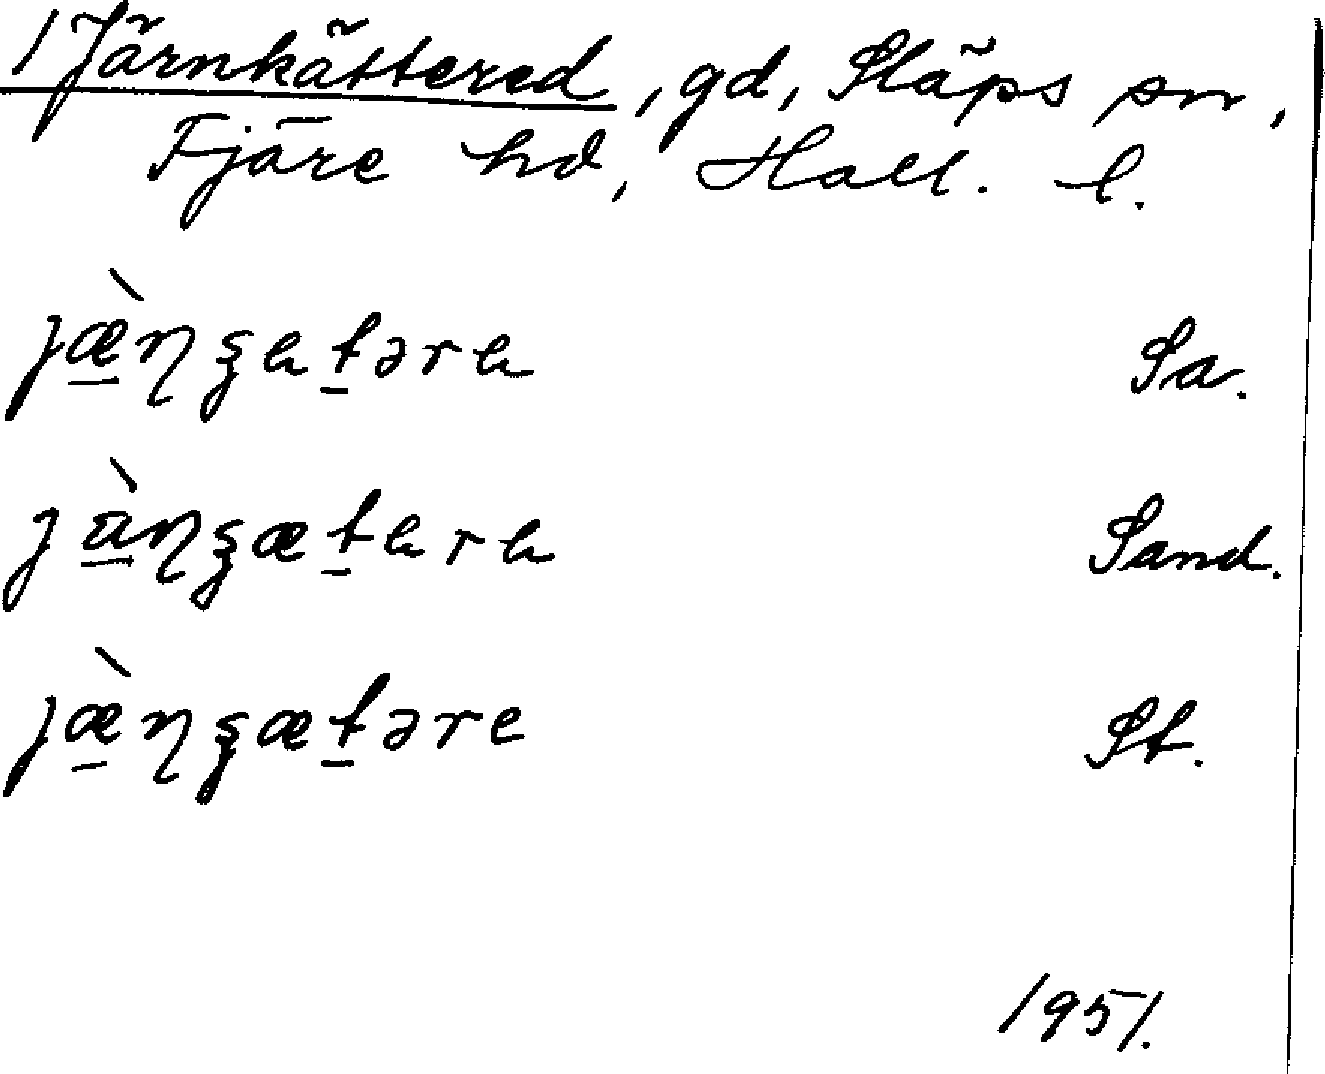 1 Järnkättered, gd, Släps sn,
Fjäre hd, Hall. l.
jæ̠̀ŋʂet̠əre Sa.
jä̠̀ŋʂæt̠ere Sand.
jæ̠̀ŋʂæt̠əre St.
1951.